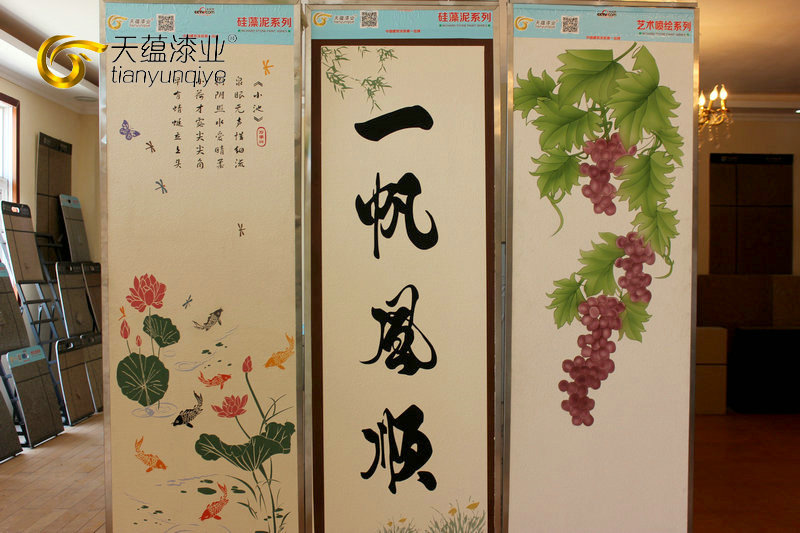 天蕴漆业®
tianyunqiye
天蕴漆业
硅藻泥系列
《小池》
泉眼无声惜细流
树阴照水爱晴柔
小荷才露尖尖角
早有蜻蜓立上头
天蕴漆业
硅藻泥系列
一帆风顺
天蕴漆业
艺术喷绘系列